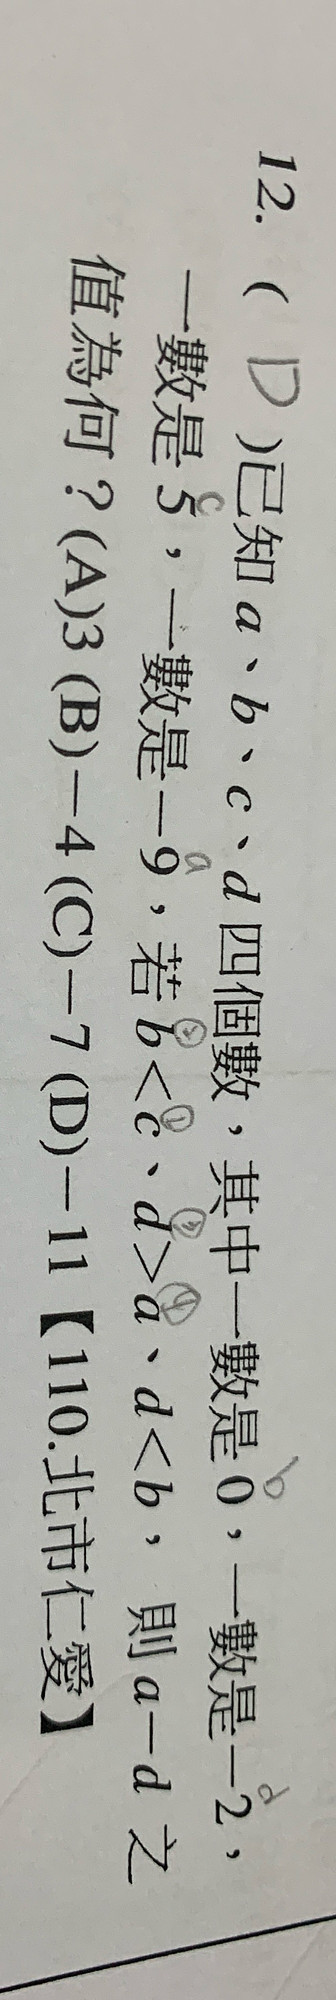 12. ( D )已知 a、b、c、d 四個數，其中一數是 0，一數是－2，
一數是 5，一數是－9，若 b＜c、d＞a、d＜b，則 a－d 之
值為何？(A)3 (B)－4 (C)－7 (D)－11【110.北市仁愛】
b
d
c
a
②
①
③
④